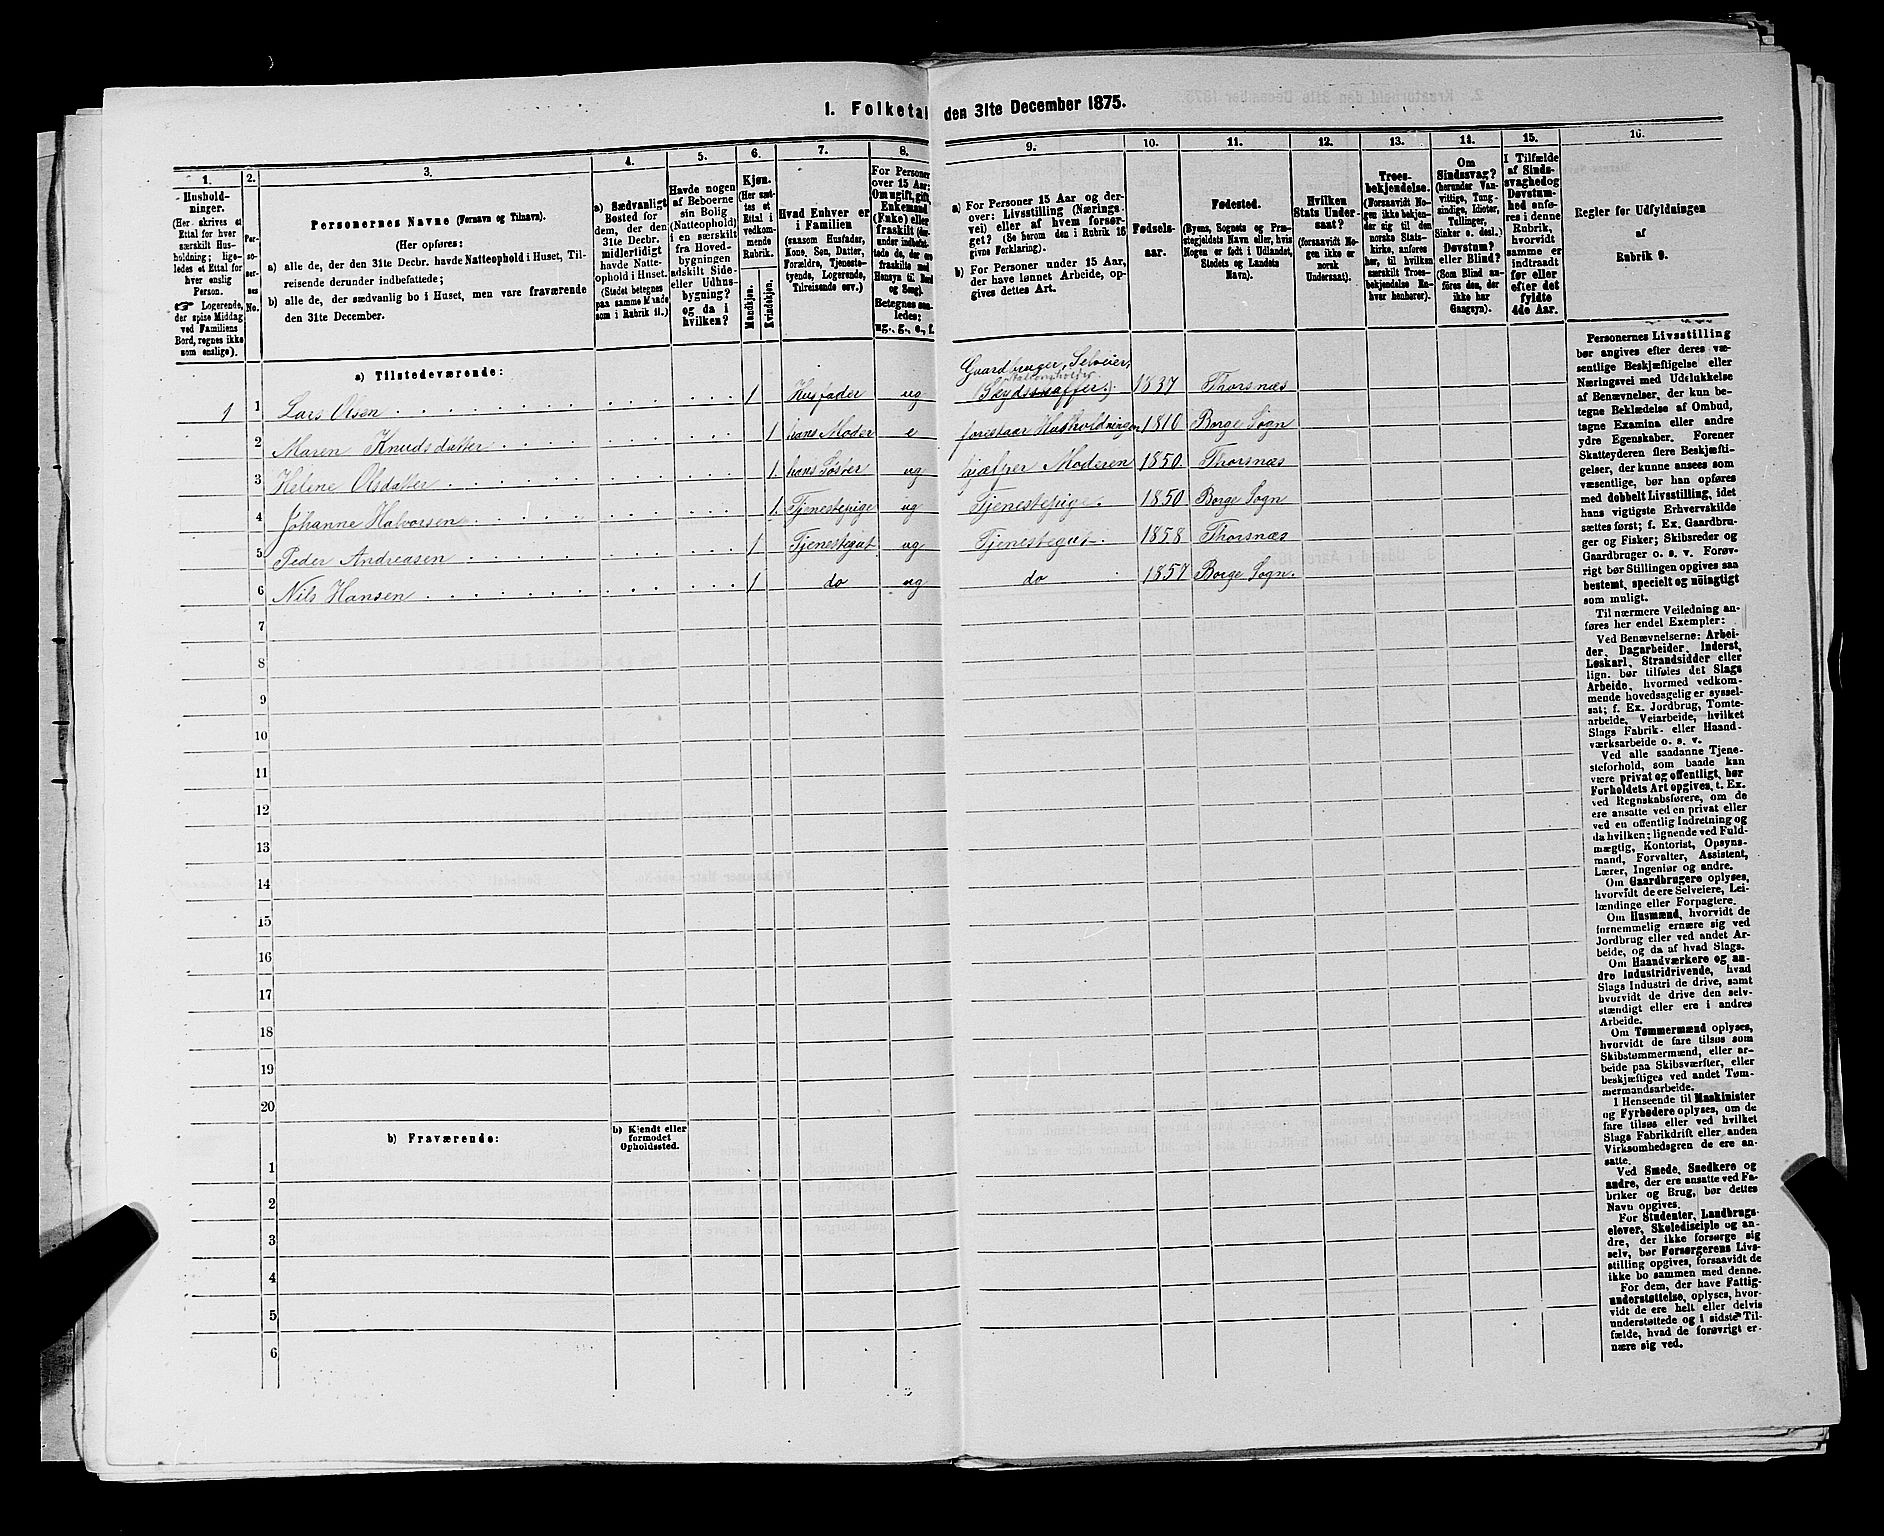 1. Folketal den 31te December 1875.
1.
Hushold-
ninger.
(Her skrives et
Ettal for hver
særskilt Hus-
holdning; lige-
ledes et Ettal for
hver enslig
Person.
☞ Logerende,
der spise Middag
ved Familiens
Bord, regnes ikke
som enslige).
2.
Per-
so-
ner-
nes
No.
3.
Personernes Navne (Fornavn og Tilnavn).
(Her opføres:
a) alle de, der den 31te Decbr. havde Natteophold i Huset, Til-
reisende derunder indbefattede;
b) alle de, der sædvanlig bo i Huset, men vare fraværende
den 31te December.
4.
a) Sædvanligt
Bosted for
dem, der den
31te Decbr.
midlertidigt
havde Natte-
ophold i Huset.
(Stedet betegnes
paa samme Maade
som i Rubrik 11.)
5.
Havde nogen
af Beboerne
sin Bolig
(Natteophold)
i en særskilt
fra Hoved-
bygningen
adskilt Side-
eller Udhus-
bygning?
og da i
hvilken?
6.
Kjøn.
(Her sæt-
tes et
Ettal i
vedkom-
mende
Rubrik.
Mandkjøn.
Kvindekjøn.
7.
Hvad Enhver er
i Familien
(saasom Husfader,
Kone, Søn, Datter,
Forældre, Tjeneste-
tyende, Logerende,
Tilreisende osv.)
8.
For Personer
over 15 Aar:
Om ugift, gift,
Enkemand
(Enke) eller
fraskilt
Betegnes saa-
ledes:
ug., g., e., f.
9.
a) For Personer 15 Aar og der-
over: Livsstilling (Nærings-
vei) eller af hvem forsør-
get? (Se herom den i Rubrik 16
givne Forklaring).
b) For Personer under 15 Aar,
der have lønnet Arbeide, op-
gives dettes Art.
10.
Fødsels-
aar.
11.
Fødested.
(Byens, Sognets og Præ-
stegjeldets Navn eller, hvis
Nogen er født i Udlandet,
Stedets og Landets
Navn).
12.
Hvilken
Stats Under-
saat?
(forsaavidt No-
gen ikke er
norsk
Undersaat).
13.
Troes-
bekjendelse.
(Forsaavidt No-
gen ikke bekjen-
der sig til den
norske Stats-
kirke, anføres
her, til hvilken
særskilt Troes-
bekjendelse En-
hver henhører).
14.
Om
Sindssvag?
(herunder Van-
vittige, Tung-
sindige, Idioter,
Tullinger,
Sinker o. desl.)
Døvstum?
eller Blind?
(Som Blind an-
føres den, der
ikke har
Gangsyn).
15.
I Tilfælde
af Sinds-
svaghed og
Døvstum-
hed anfø-
res i denne
Rubrik,
hvorvidt
samme er
indtraadt
før eller
efter det
fyldte
4de Aar.
16.
Regler for Udfyldningen
af
Rubrik 9.
a) Tilstedeværende:
1 1 Lars Olsen 1 Husfader ug Gaardbruger, Selveier, (Skydsskaffer) stationsholder 1837 Thorsnæs
2 Maren Knudsdatter 1 hans Moder e forestaar Husholdningen 1810 Borge Sogn
3 Helene Olsdatter 1 hans Søster ug hjælper Moderen 1850 Thorsnæs
4 Johanne Halvorsen 1 Tjenestepige ug Tjenestepige 1850 Borge Sogn
5 Peder Andreasen 1 Tjenestegut ug Tjenestegut 1858 Thorsnæs
6 Nils Hansen 1 do ug do 1857 Borge Sogn.
7
8
9
10
11
12
13
14
15
16
17
18
19
20
b) Fraværende:
b) Kjendt eller
formodet
Opholdssted.
1
2
3
4
5
6
Personernes Livsstilling
bør angives efter deres væ-
sentlige Beskjæftigelse eller
Næringsvei med Udelukkelse
af Benævnelser, der kun be-
tegne Beklædelse af Ombud,
tagne Examina eller andre
ydre Egenskaber. Forener
Skatteyderen flere Beskjæfti-
gelser, der kunne ansees som
væsentlige, bør han opføres
med dobbelt Livsstilling, idet
hans vigtigste Erhvervskilde
sættes først; f. Ex. Gaardbru-
ger og Fisker; Skibsreder og
Gaardbruger o. s. v. Forøv-
rigt bør Stillingen opgives saa
bestemt, specielt og nøiagtigt
som muligt.
Til nærmere Veiledning an-
føres her endel Exempler:
Ved Benævnelserne: Arbei-
der, Dagarbeider, Inderst,
Løskarl, Strandsidder eller
lign. bør tilføies det Slags
Arbeide, hvormed vedkom-
mende hovedsagelig er syssel-
sat; f. Ex. Jordbrug, Tomte-
arbeide, Veiarbeide, hvilket
Slags Fabrik- eller Haand-
værksarbeide o. s. v.
Ved alle saadanne Tjene-
steforhold, som baade kan
være privat og offentligt, bør
Forholdets Art opgives, t. Ex.
ved Regnskabsførere, om de
ere ansatte ved en privat eller
ved en offentlig Indretning og
da hvilken; lignende ved Fuld-
mægtig, Kontorist, Opsyns-
mand, Forvalter, Assistent,
Lærer, Ingeniør og andre.
Om Gaardbrugere oplyses,
hvorvidt de ere Selveiere, Lei-
lændinge eller Forpagtere.
Om Husmænd, hvorvidt de
fornemmelig ernære sig ved
Jordbrug eller ved andet Ar-
beide, og da af hvad Slags.
Om Haandværkere og an-
dre Industridrivende, hvad
Slags Industri de drive, samt
hvorvidt de drive den selv-
stændigt eller ere i andres
Arbeide.
Om Tømmermænd oplyses,
hvorvidt de fare tilsøs som
Skibstømmermænd, eller ar-
beide paa Skibsværfter, eller
beskjæftiges ved andet Tøm-
mermandsarbeide.
I Henseende til Maskinister
og Fyrbødere oplyses, om de
fare tilsøs eller ved hvilket
Slags Fabrikdrift eller anden
Virksomhedsgren de ere an-
satte.
Ved Smede, Snedkere og
andre, der ere ansatte ved Fa-
briker og Brug, bør dettes
Navn opgives.
For Studenter, Landbrugs-
elever, Skoledisciple og an-
dre, der ikke forsørge sig
selv, bør Forsørgerens Livs-
stilling opgives, forsaavidt de
ikke bo sammen med denne.
For dem, der have Fattig-
understøttelse, oplyses, hvor-
vidt de ere helt eller delvis
understøttede og i sidste Til-
fælde, hvad de forøvrigt er-
nære sig ved.